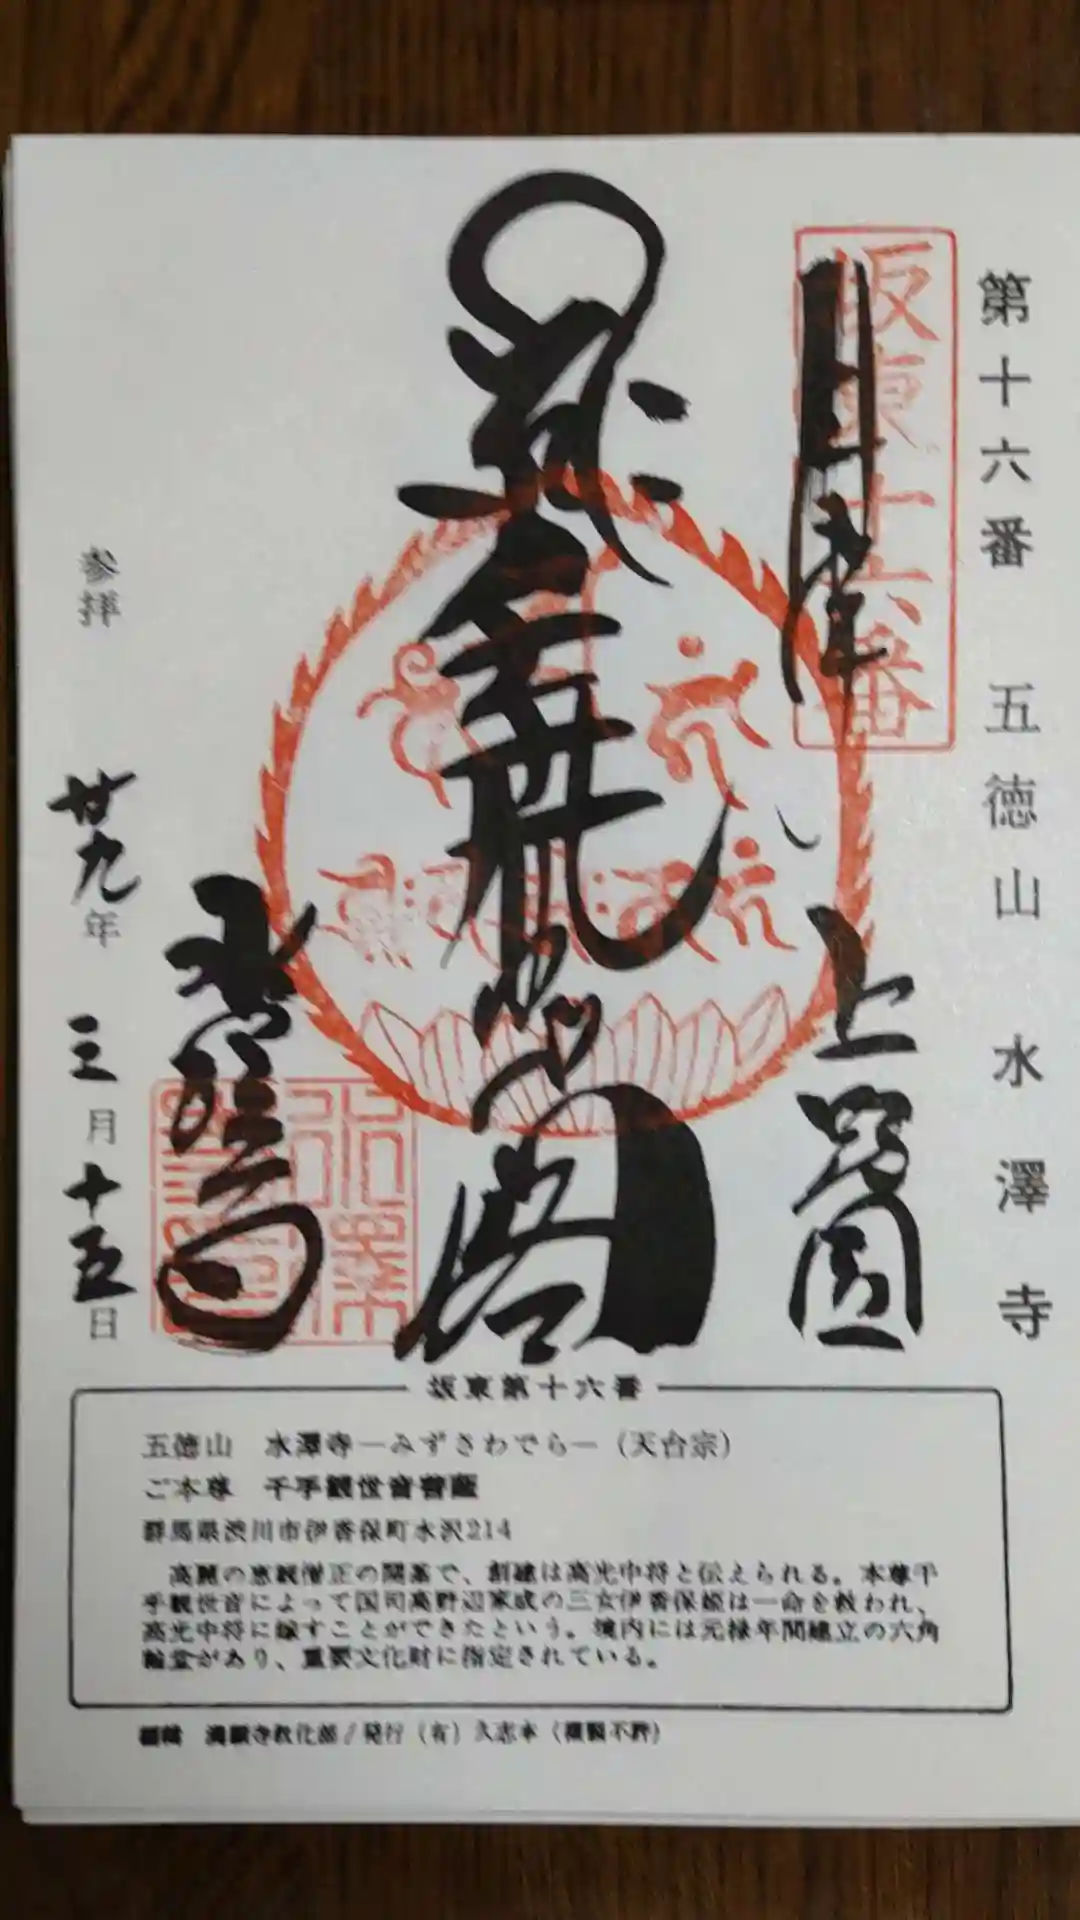 第十六番 五徳山 水澤寺
坂東十六番
上野国
水澤寺
参拝 廿九年 三月 十五日
坂東第十六番
五徳山 水澤寺―みずさわでら―（天台宗）
ご本尊 千手観世音菩薩
群馬県渋川市伊香保町水沢214
高麗の恵観僧正の開基で、創建は高光中将と伝えられる。本尊千
手観世音によって国司高野辺家成の三女伊香保姫は一命を救われ、
高光中将に嫁すことができたという。境内には元禄年間建立の六角
輪堂があり、重要文化財に指定されている。
編輯 満願寺教化部／発行（有）久志本（複製不許）